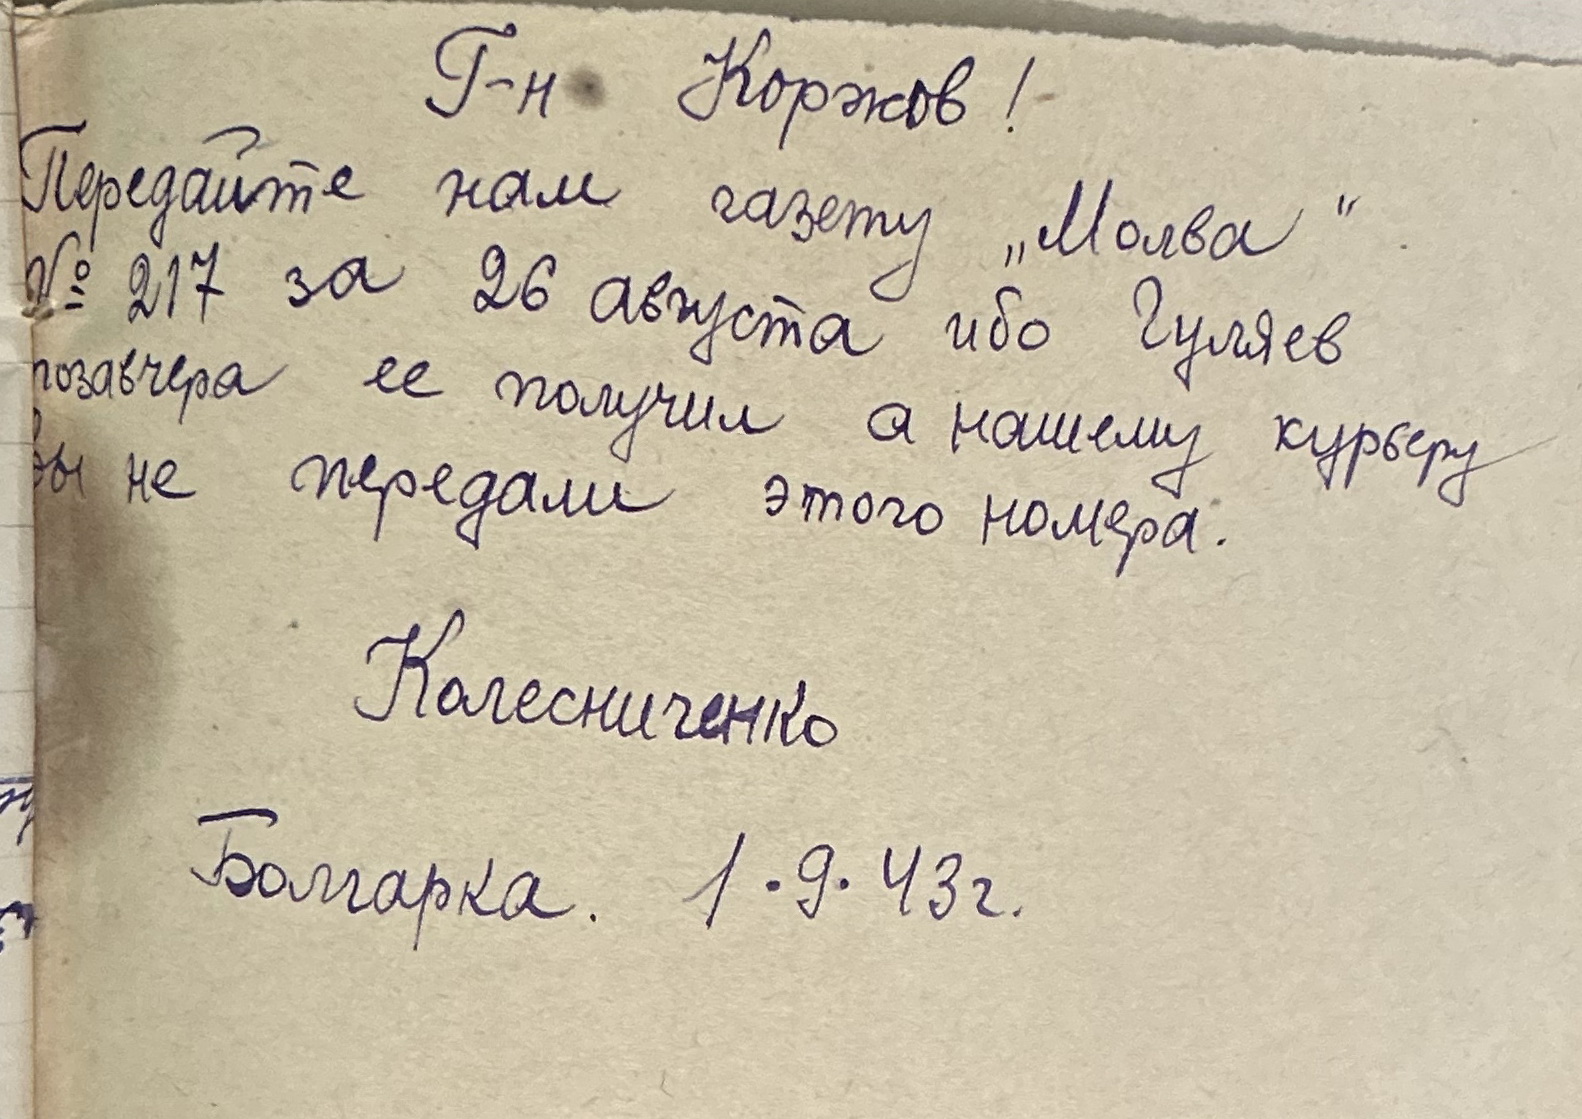 Г-н Коржов!
Передайте нам газету „Молва"
№ 217 за 26 августа ибо Гуляев
позавчера ее получил а нашему курьеру
вы не передали этого номера.
Колесниченко
Болгарка. 1.9.43г.